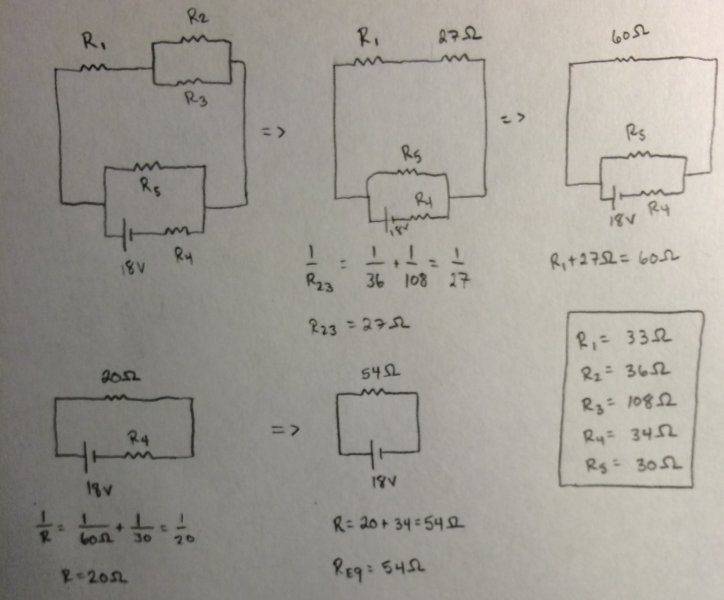 R₁ R₂
R₃
R₅
18V R₄
=>
R₁ 27Ω
R₅
R₄
18V
1/R₂₃ = 1/36 + 1/108 = 1/27
R₂₃ = 27Ω
=>
60Ω
R₅
18V R₄
R₁+27Ω = 60Ω
R₁ = 33Ω
R₂ = 36Ω
R₃ = 108Ω
R₄ = 34Ω
R₅ = 30Ω
20Ω
R₄
18V
1/R = 1/60Ω + 1/30 = 1/20
R = 20Ω
=>
54Ω
18V
R = 20 + 34 = 54Ω
R_EQ = 54Ω